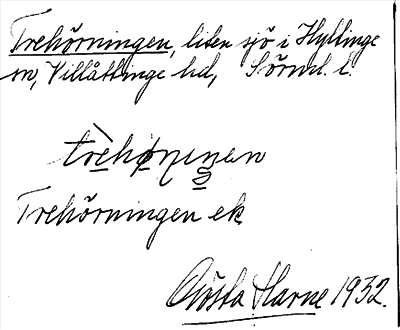 Trehörningen, liten sjö i Hyltinge
sn, Villåttinge hd, Sörml. l.
Trehörningen ek
Gösta Harne 1932.